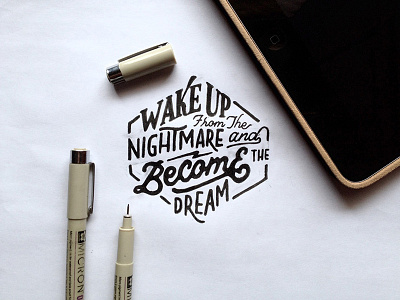 WAKE UP
From The
NIGHTMARE and
BECOME THE
DREAM
MICRON